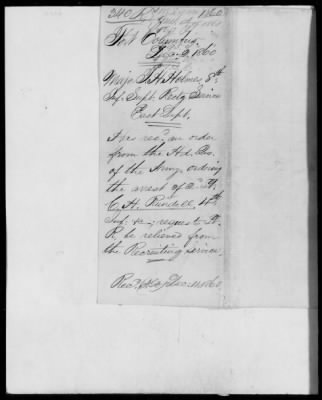 Fort Columbus,
1860
Major T. H. Holmes, 8th
Inf. Supt. Rectg Service
East Dept.
Has rec'd an order
from the Hd. Qrs.
of the Army ordering
the arrest of
C. H. Rundell, 4th
Inf. &c; requests Lt.
R. be relieved from
the Recruiting service.
Rec'd 1860